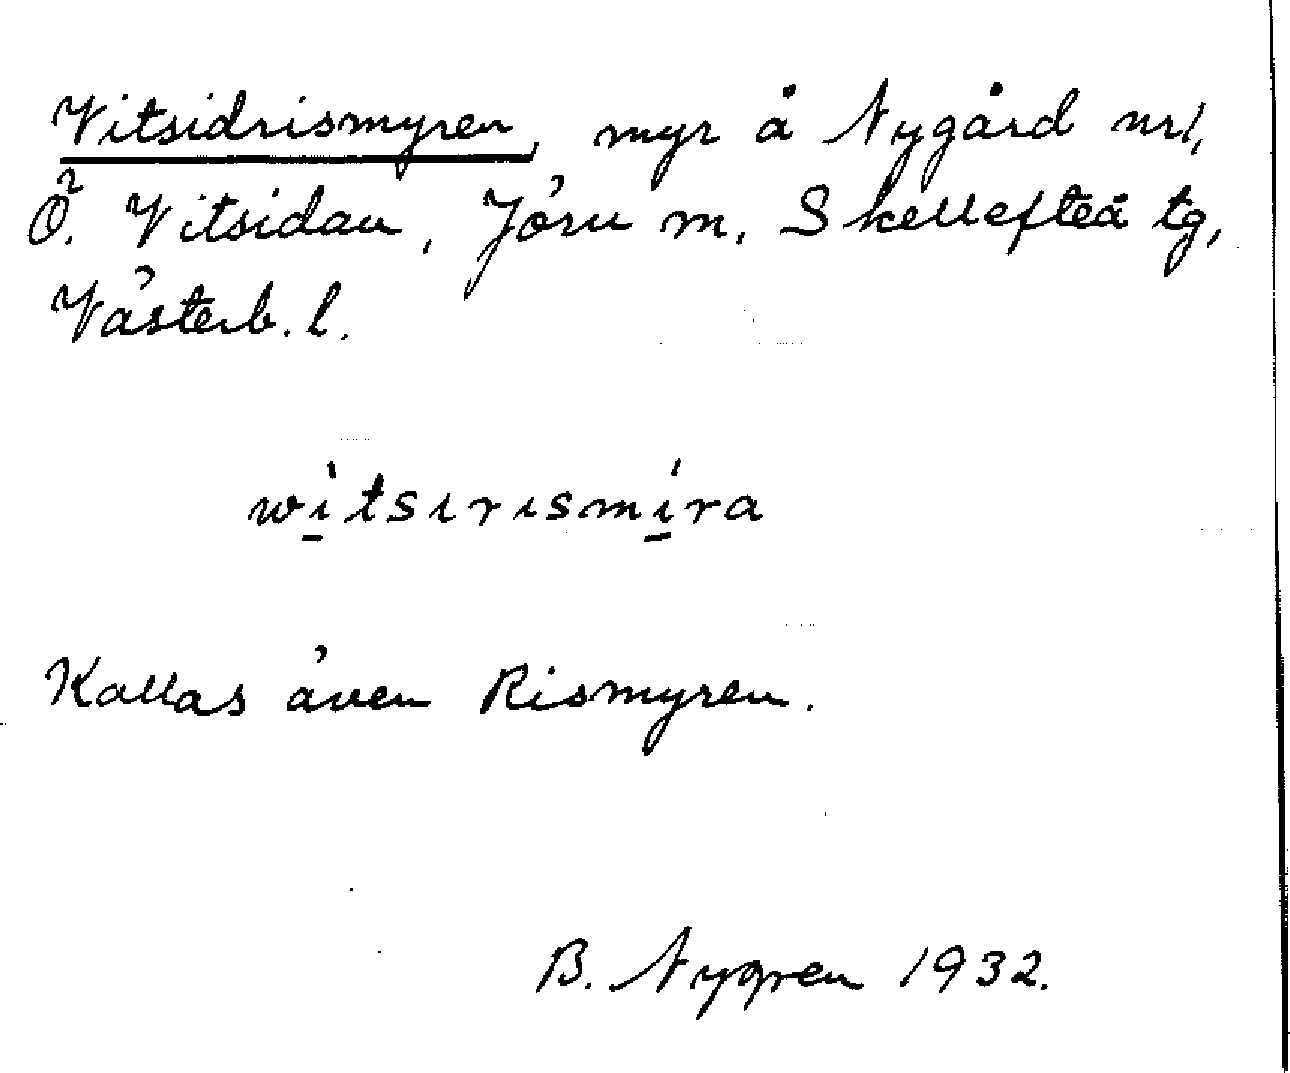 Vitsidrismyren, myr å Nygård nr 1,
Ö. Vitsidan, Jörn m. Skellefteå tg,
Västerb. l.
wi̱tsırısmi̱ra
Kallas även Rismyren.
B. Nygren 1932.